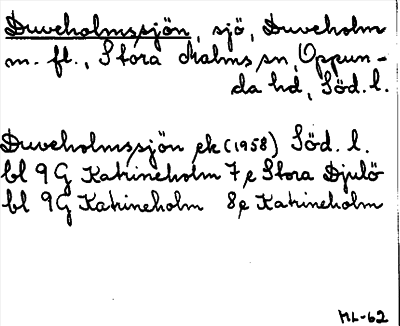 Duveholmssjön, sjö, Duveholm
m. fl., Stora Malms sn, Oppun-
da hd, Söd. l.
Duveholmssjön ek (1958) Söd. l.
bl 9G Katrineholm 7e Stora Djulö
bl 9G Katrineholm 8e Katrineholm
ML-62